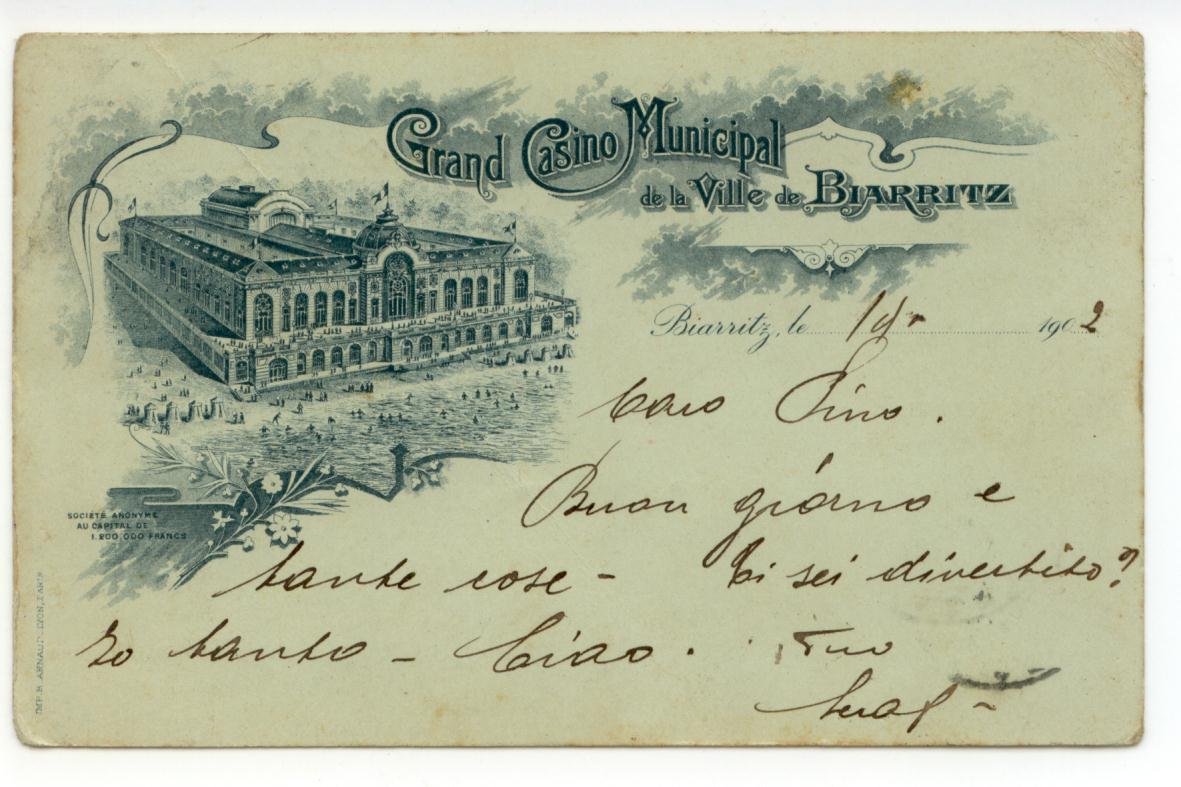 Grand Casino Municipal
de la Ville de BIARRITZ
Biarritz, le 1902
Caro Pino.
Buon giorno e
tante cose - Ti sei divertito?
Io tanto - Ciao. Tuo
SOCIÉTÉ ANONYME
AU CAPITAL DE
1.200.000 FRANCS
IMP. B. ARNAUD, LYON, PARIS